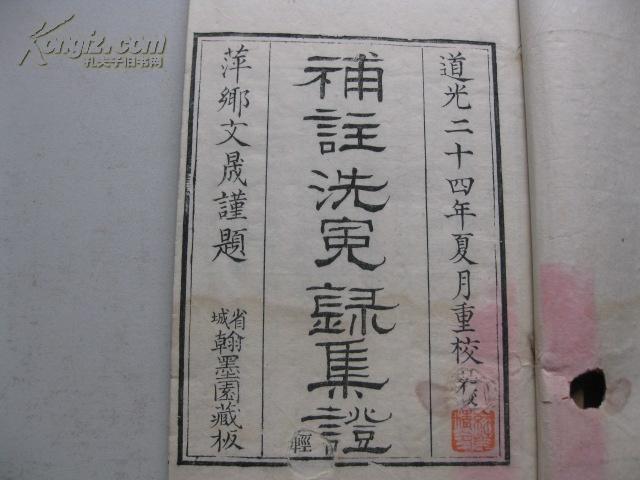 道光二十四年夏月重校
補註洗冤録集證
萍鄉文晟謹題
省城翰墨園藏板
輕
Kongfz.com
孔夫子旧书网